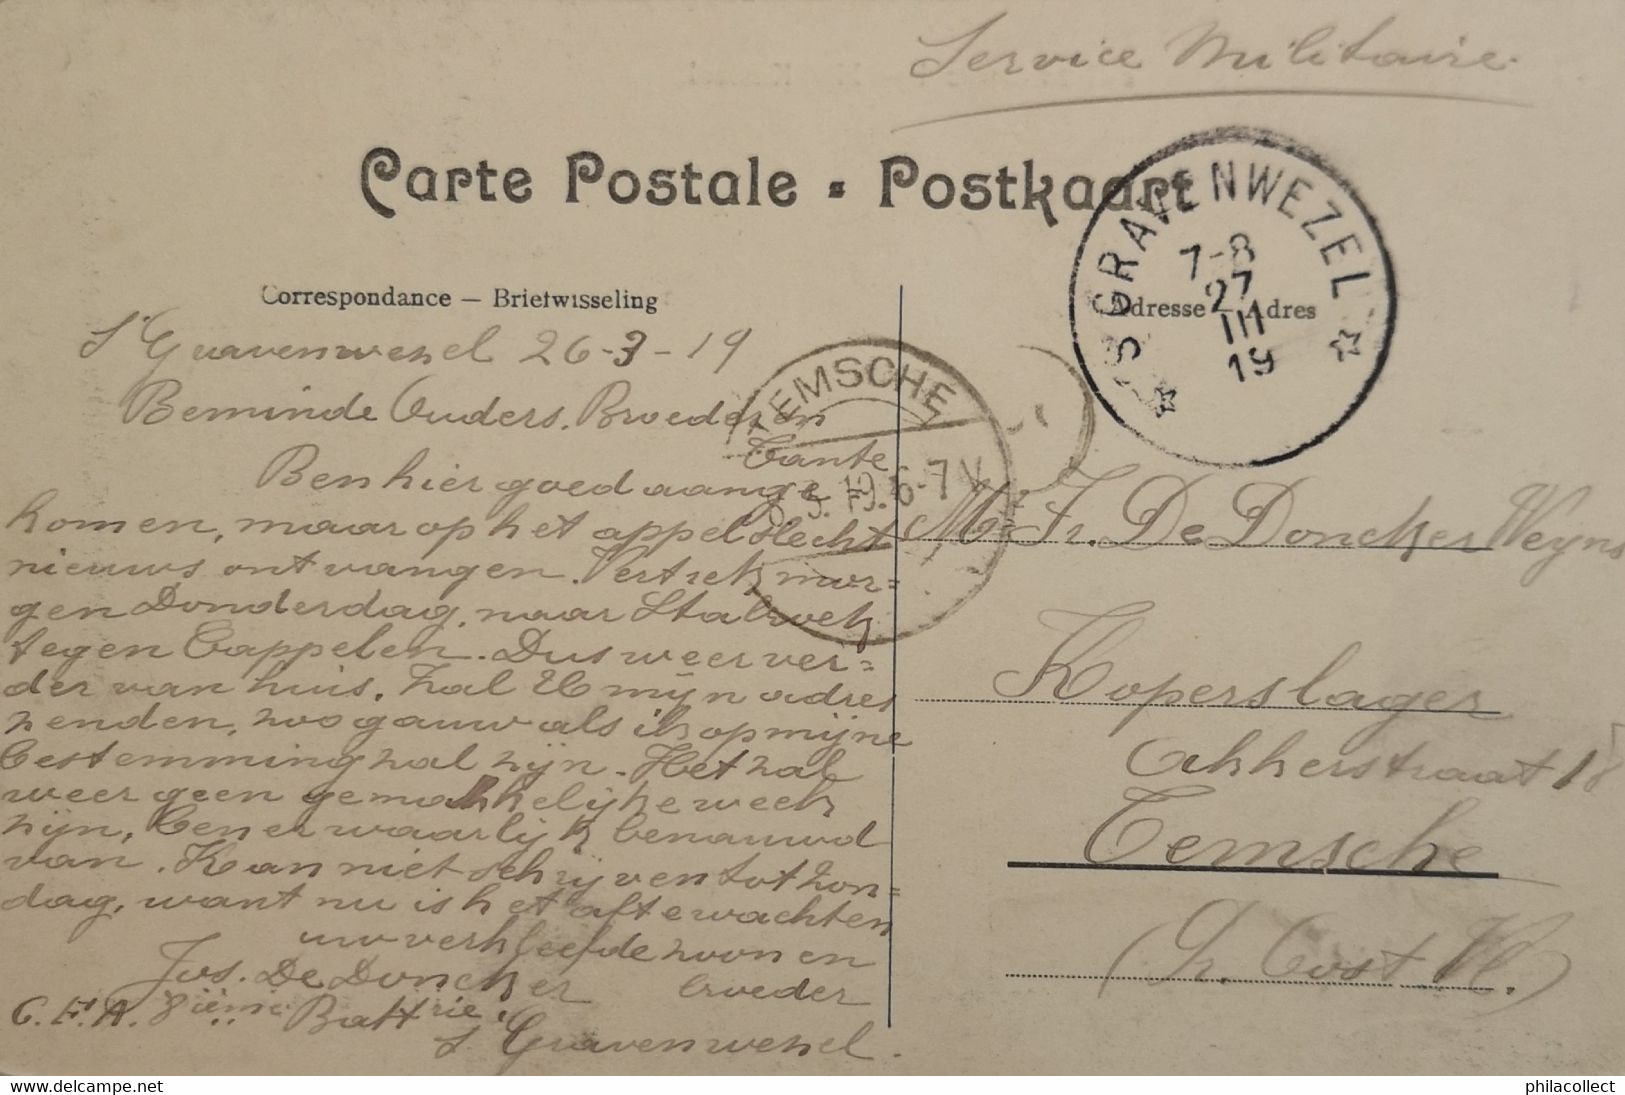 Service Militaire.
Carte Postale - Postkaart
'S GRAVENWEZEL
7-8
27
III
19
Correspondance — Briefwisseling
Adresse — Adres
S' Gravenwezel 26-3-19
TEMSCHE
3. 19. 6-7 V
Beminde Ouders. Broeder en
Tante
Ben hier goed aange
komen, maar op het appel slecht
nieuws ontvangen. Vertrek mor=
gen Donderdag, naar Stabroek
tegen Cappelen. Dus weer ver=
der van huis. Zal U mijn adres
zenden, zoo gauw als ik op mijne
bestemming zal zijn. Het zal
weer geen gemakkelijke week
zijn, ben er waarlijk benauwd
van. Kan niet schrijven tot zon=
dag, want nu is het afte wachten
uw verkleefde zoon en
Jos. De Doncker broeder
C.F.A. 8ième Battrie.
S' Gravenwezel.
Mr Fr. De Doncker Weyns
Koperslager
Akkerstraat 18
Temsche
(Pr. Oost Vl.)
delcampe.net
philacollect